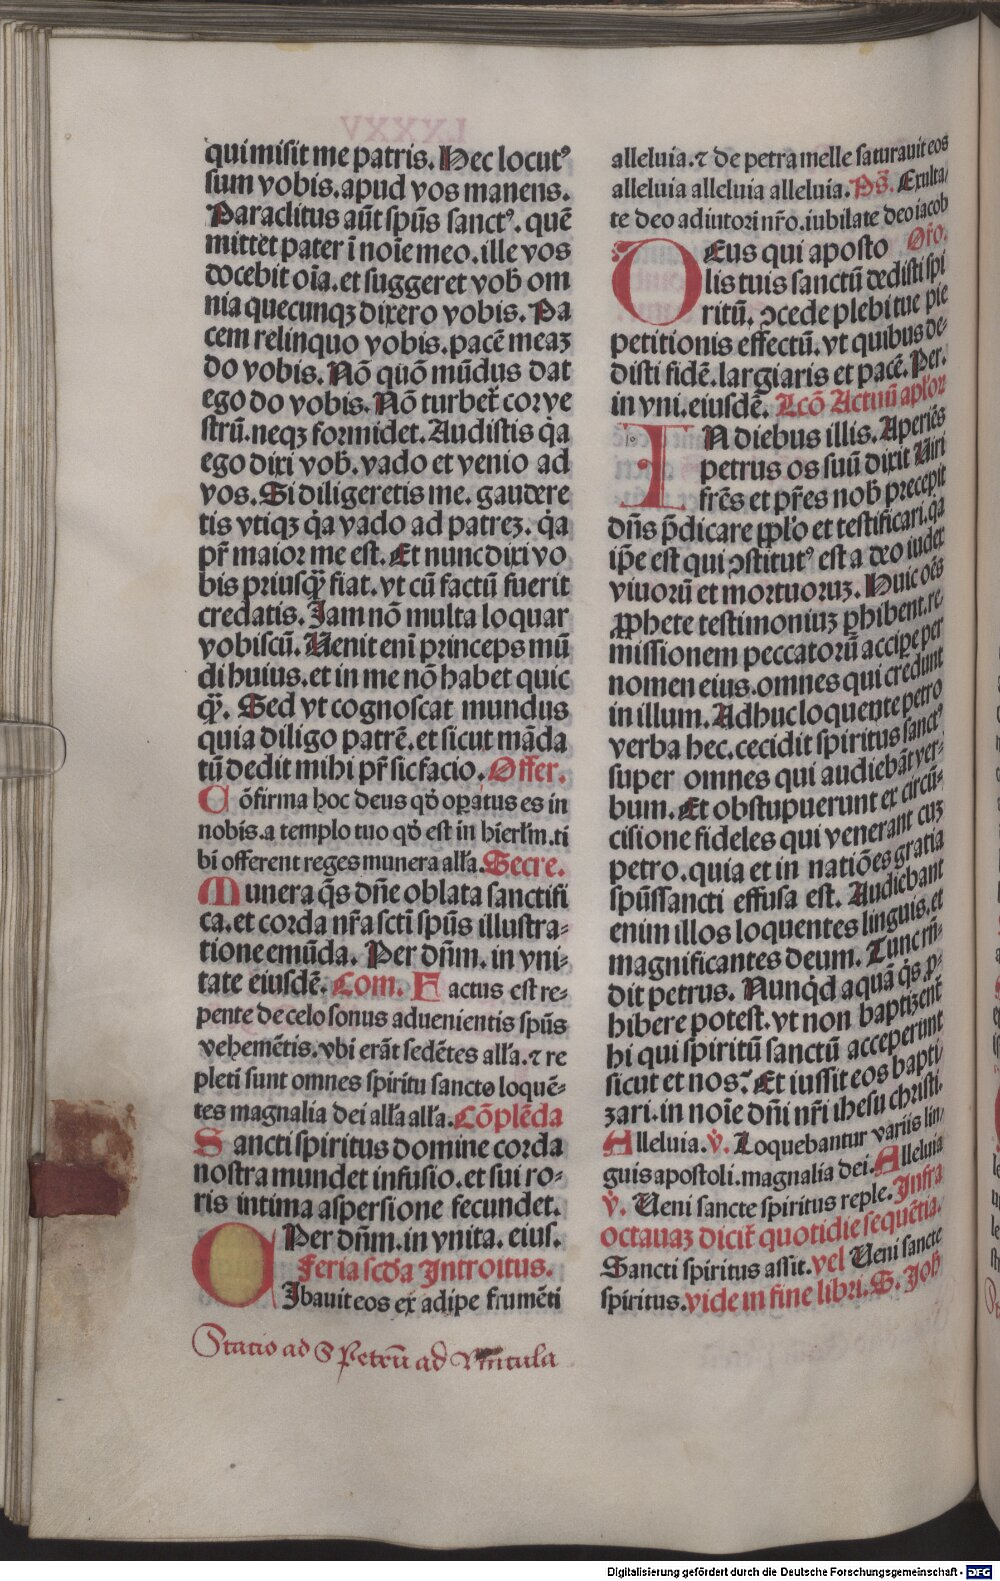 qui misit me patris. Hec locutꝰ
sum vobis. apud vos manens.
Paraclitus aūt spūs sanctꝰ. quē
mittet pater ī noīe meo. ille vos
docebit oīa. et suggeret vob̄ om
nia quecunqꝫ dixero vobis. Pa
cem relinquo vobis. pacē meaꝫ
do vobis. Nō quō mūdus dat
ego do vobis. Nō turbet̄ cor ve
strū. neqꝫ formidet. Audistis q̄a
ego dixi vob̄. vado et venio ad
vos. Si diligeretis me. gaudere
tis vtiqꝫ q̄a vado ad patreꝫ. q̄a
pr̄ maior me est. Et nunc dixi vo
bis priusqꝫ̄ fiat. vt cū factū fuerit
credatis. Jam nō multa loquar
vobiscū. Uenit enī princeps mū
di huius. et in me nō habet quic
qꝫ̄. Sed vt cognoscat mundus
quia diligo patrē. et sicut māda
tū dedit mihi pr̄ sic facio. Offer.
Cōfirma hoc deus qd̄ oꝑatus es in
nobis. a templo tuo qd̄ est in hierłm. ti
bī offerent reges munera ałła. Secre.
Munera q̄s dn̄e oblata sanctifi
ca. et corda nr̄a sctī spūs illustra-
tione emūda. Per dn̄m. in vni-
tate eiusdē. Com. Factus est re-
pente de celo sonus aduenientis spūs
vehemētis. vbi erāt sedētes ałła. ⁊ re
pleti sunt omnes spiritu sancto loquē-
tes magnalia dei ałła ałła. Cōplēda
Sancti spiritus domine corda
nostra mundet infusio. et sui ro-
ris intima aspersione fecundet.
Per dn̄m. in vnita. eius.
Feria scd̄a Introitus.
Cibauit eos ex adipe frumēti
Statio ad S Petrū ad Vincula
alleluia. ⁊ de petra melle saturauit eos
alleluia alleluia alleluia. Ps̄. Exulta/
te deo adiutori nr̄o. iubilate deo iacob
Deus qui aposto Or̄o.
lis tuis sanctū dedisti spi
ritū. ꝯcede plebi tue pie
petitionis effectū. vt quibus de-
disti fidē. largiaris et pacē. Per.
in vni. eiusdē. Lcō Actuū apl̄oꝝ
IN diebus illis. Aperiēs
petrus os suū dixit Uiri
frēs et pr̄es nob̄ precepit
dn̄s p̄dicare ppl̄o et testificari. q̄a
ip̄e est qui ꝯstitutꝰ est a deo iudex
viuorū et mortuoruꝫ. Huic oēs
ꝓphete testimoniuꝫ ꝑhibent. re-
missionem peccatorū accipe per
nomen eius. omnes qui credunt
in illum. Adhuc loquente petro
verba hec. cecidit spiritus sanctꝰ
super omnes qui audiebāt ver-
bum. Et obstupuerunt ex circū-
cisione fideles qui venerant cuꝫ
petro. quia et in natiōes gratia
spūssancti effusa est. Audiebant
enim illos loquentes linguis. et
magnificantes deum. Tunc rn̄-
dit petrus. Nunqd̄ aquā q̄s ꝓ-
hibere potest. vt non baptizent̄
hi qui spiritū sanctū acceperunt
sicut et nos. Et iussit eos bapti
zari. in noīe dn̄i nr̄i ihesu christi.
Alleluia. V̄. Loquebantur variis lin/
guis apostoli. magnalia dei. Alleluia
V̄. Ueni sancte spiritus reple. Infra
octauaꝫ dicit̄ quotidie sequētia.
Sancti spiritus assit. vel Ueni sancte
spiritus. vide in fine libri. S. Joh̄
Digitalisierung gefördert durch die Deutsche Forschungsgemeinschaft - DFG